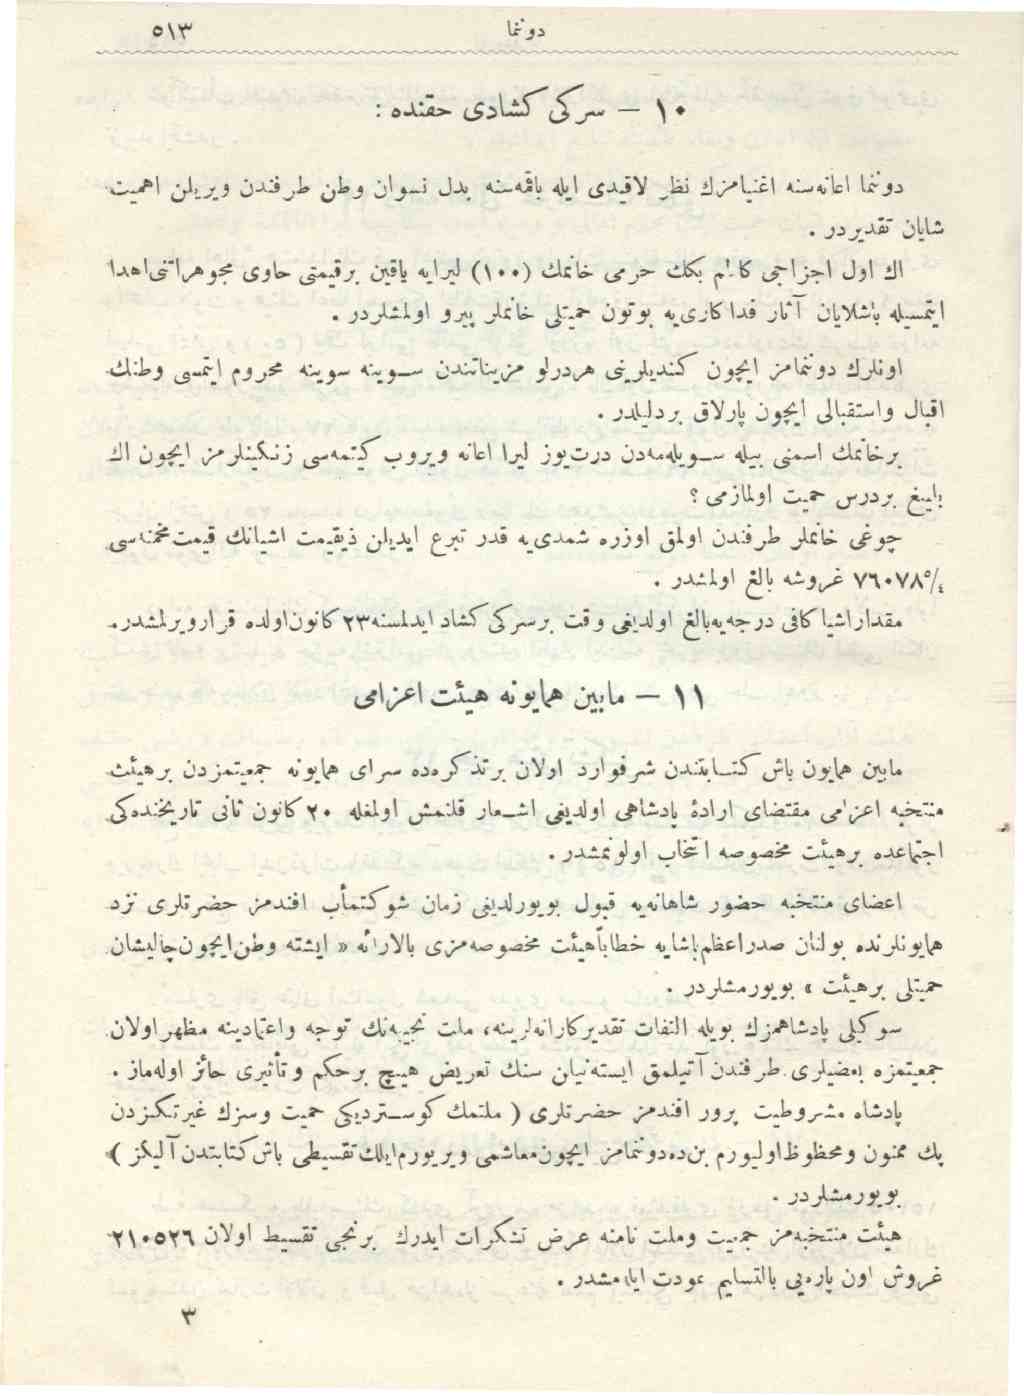 دوننما
٥١٣
١٠ — سركی كشادی حقنده :
دوننما اعانه‌سنه اغنیامزك نظر لاقیدی ایله باقمه‌سنه بدل نسوان وطن طرفندن ویریلن اهمیت
شایان تقدیردر .
اك اول اجزاجی بكك حرمی خانمك (١٠٠) لیرایه یاقین برقیمتی حاوی مجوهراتنی اهدا
ایتمسیله باشلایان آثار فداكاری‌یه بوتون حمیتلی خانملر پیرو اولمشلردر .
اونلرك دوننمامز ایچون كندیلرینی هردرلو مزیناتندن سوینه سوینه محروم ایتمسی وطنك
اقبال واستقبالی ایچون پارلاق بردلیلدر .
برخانمك اسمنی بیله سویله‌مه‌دن درت‌یوز لیرا اعانه ویروب كیتمه‌سی زنكینلرمز ایچون اك
بلیغ بردرس حمیت اولمازمی ؟
چوغی خانملر طرفندن اولمق اوزره شمدی‌یه قدر تبرع ایدیلن ذیقیمت اشیانك قیمت مخمنه‌سی
٧٦٠٧٨ غروشه بالغ اولمشدر .
مقدار اشیا كافی درجه‌یه بالغ اولدیغی وقت برسركی كشاد ایدلمسنه ٢٣ كانون‌اولده قرارویرلمشدر.
١١ — مابین همایونه هیئت اعزامی
مابین همایون باش كتابتندن شرفوارد اولان برتذكره‌ده سرای همایونه جمعیتمزدن برهیئت
منتخبه اعزامی مقتضای ارادهٔ پادشاهی اولدیغی اشعار قلنمش اولمغله ٢٠ كانون ثانی تاریخنده‌كی
اجتماعده برهیئت مخصوصه انتخاب اولونمشدر .
اعضای منتخبه حضور شاهانه‌یه قبول بویورلدیغی زمان شوكتمأب افندمز حضرتلری نزد
همایونلرنده بولنان صدراعظم پاشایه خطاباً هیئت مخصوصه‌مزی بالارائه « ایشته وطن ایچون چالیشان
حمیتلی برهیئت » بویورمشلردر .
سوكیلی پادشاهمزك بویله التفات تقدیركارانه‌لرینه، ملت نجیبه‌نك توجه واعتمادینه مظهر اولان
جمعیتمزه بعضیلری طرفندن آتیلمق ایسته‌نیلن سنك تعریض هیچ برحكم وتأثیری حائز اوله‌ماز .
پادشاه مشروطیت پرور افندمز حضرتلری ( ملتمك كوستردیكی حمیت وسزك غیرتكزدن
پك ممنون ومحظوظ اولیورم بن‌ده دوننمامز ایچون معاشمی ویریورم ایلك تقسیطی باش كتابتدن آلیكز )
بویورمشلردر .
هیئت منتخبه‌مز جمعیت وملت نامنه عرض تشكرات ایدرك برنجی تقسیط اولان ٢١٠٥٢٦
غروش اون پاره‌یی بالتسلیم عودت ایله‌مشدر .
٣